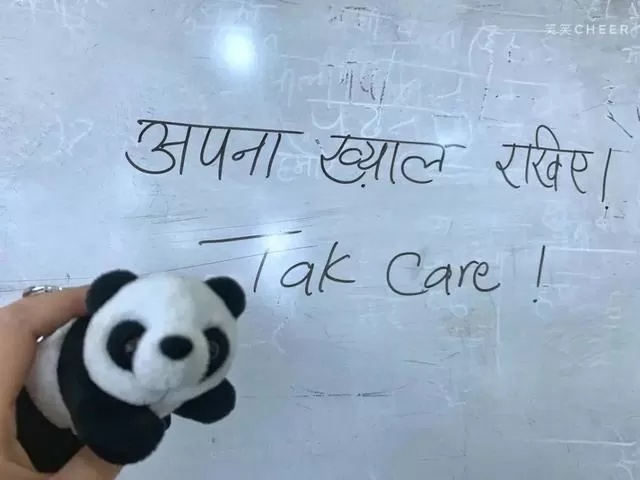 笑笑CHEER
अपना ख़्याल रखिए!
Tak Care !